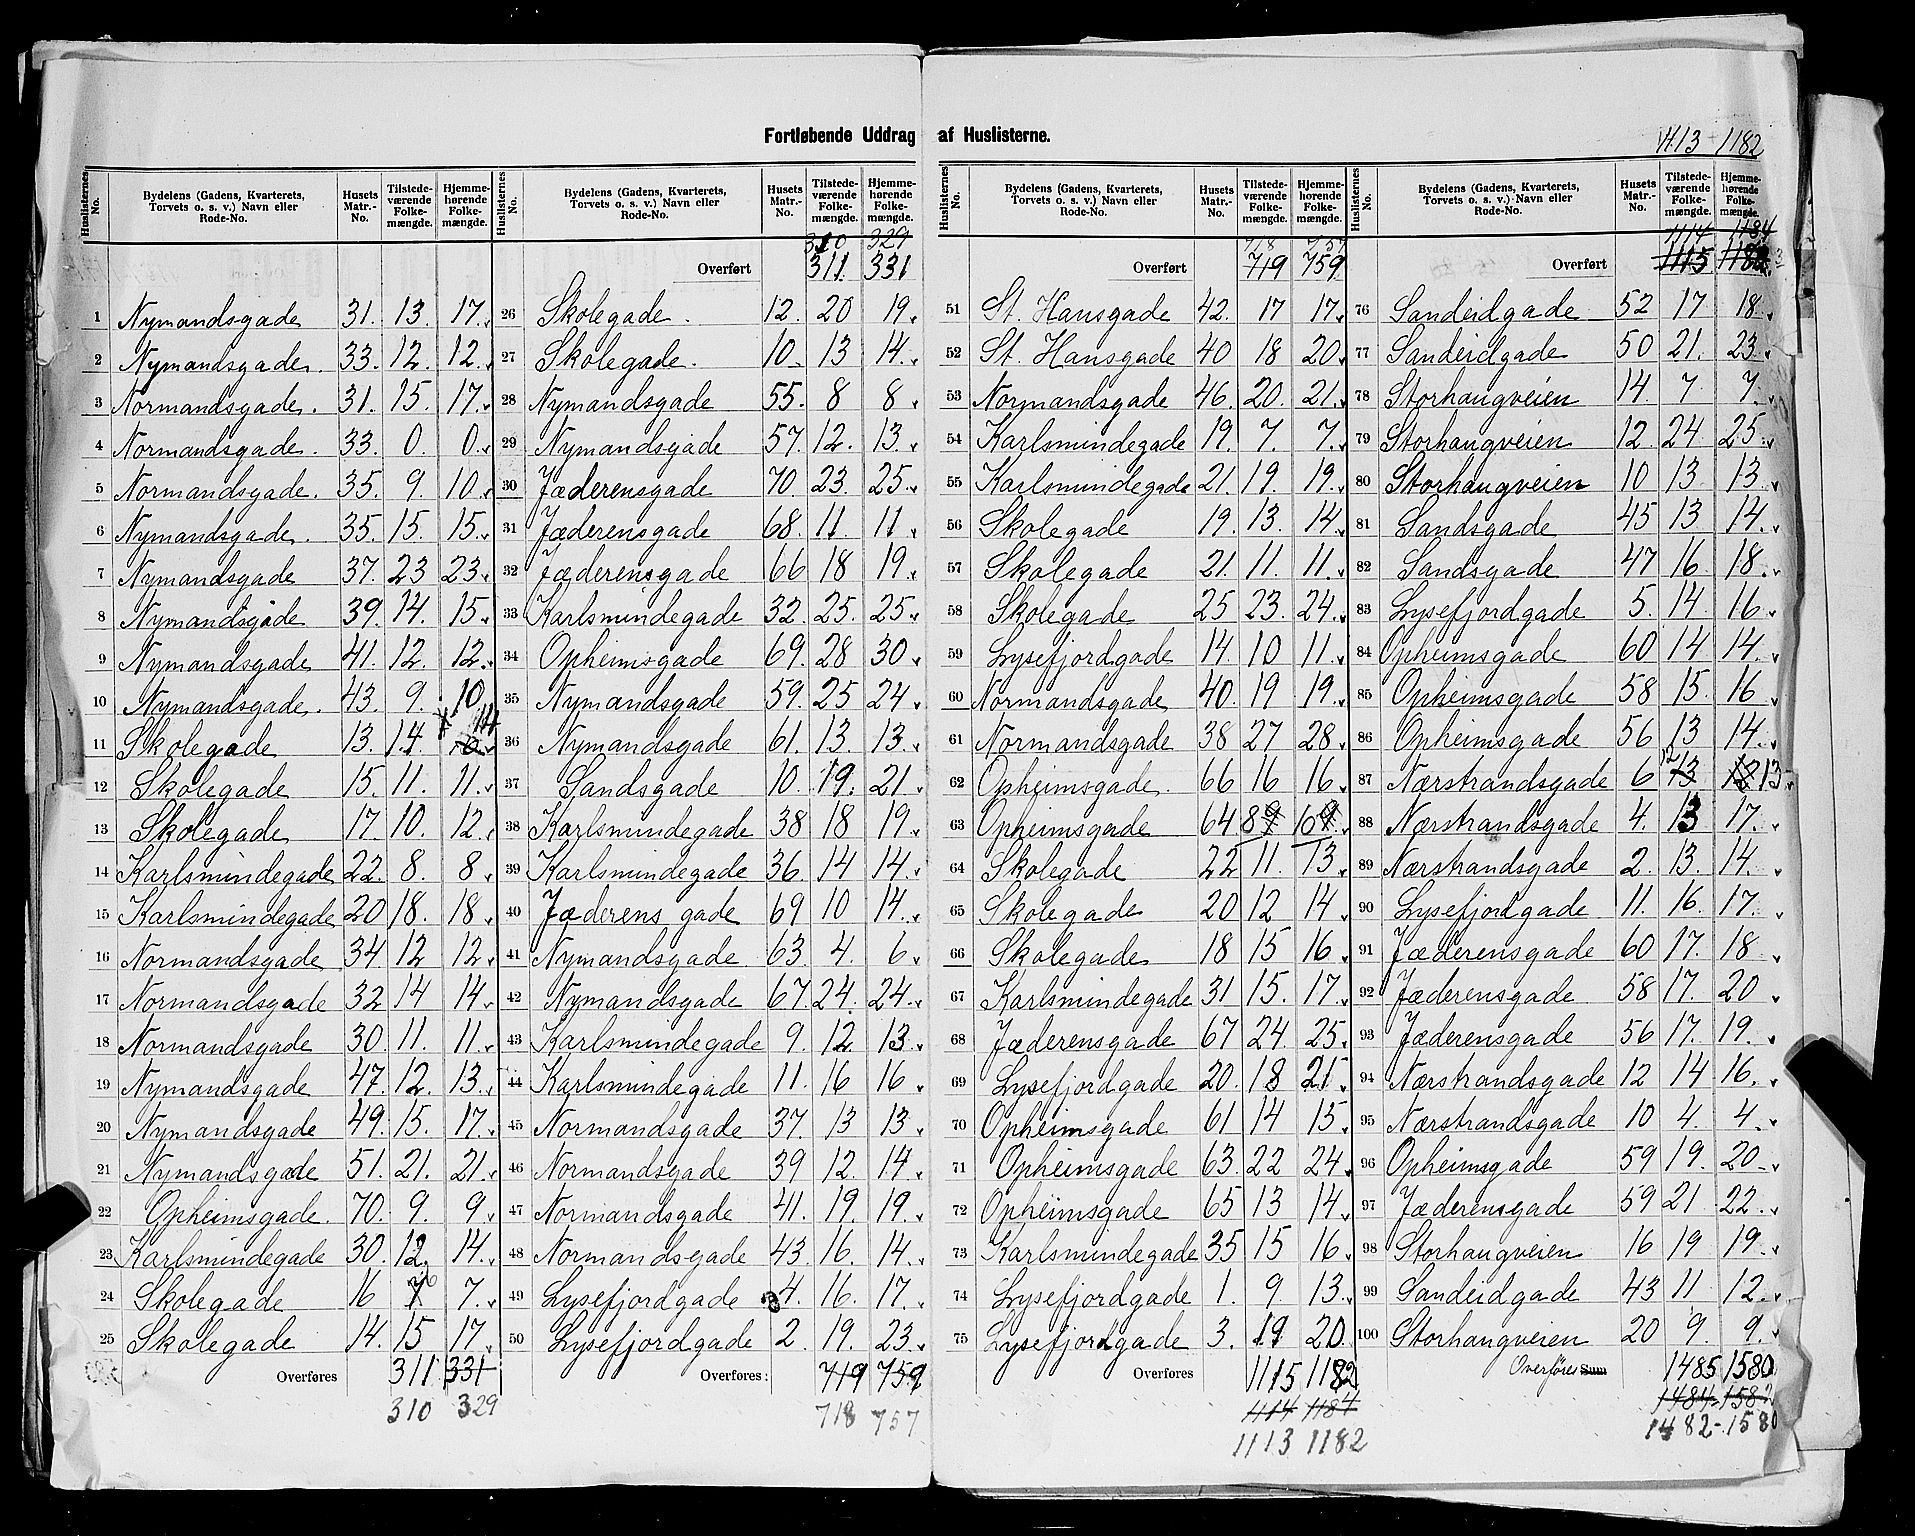 Fortløbende Uddrag af Huslisterne.
1113 - 1182
Huslisternes No. | Bydelens (Gadens, Kvarterets, Torvets o. s. v.) Navn eller Rode-No. | Husets Matr.-No. | Tilstede-værende Folke-mængde. | Hjemme-hørende Folke-mængde.
1 Nymandsgade 31. 13. 17.
2 Nymandsgade. 33. 12. 12.
3 Normandsgade. 31. 15. 17.
4 Normandsgade. 33. 0. 0.
5 Normandsgade. 35. 9. 10.
6 Nymandsgade. 35. 15. 15.
7 Nymandsgade 37. 23 23.
8 Nymandsgade 39. 14. 15.
9 Nymandsgade 41. 12. 12.
10 Nymandsgade. 43. 9. 10.
11 Skolegade 13. 14. 14
12 Skolegade 15. 11. 11.
13 Skolegade 17 10. 12.
14 Karlsmindegade 22. 8. 8.
15 Karlsmindegade 20 18. 18.
16 Normandsgade 34. 12 12.
17 Normandsgade 32 14 14.
18 Normandsgade 30. 11. 11.
19 Nymandsgade 47. 12. 13.
20 Nymandsgade 49. 15. 17.
21 Nymandsgade 51. 21. 21.
22 Opheimsgade. 70. 9. 9.
23 Karlsmindegade 30. 12. 14.
24 Skolegade 16 7 6 7.
25 Skolegade 14. 15 17.
Overføres 311 331
310 329
Huslisternes No. | Bydelens (Gadens, Kvarterets, Torvets o. s. v.) Navn eller Rode-No. | Husets Matr.-No. | Tilstede-værende Folke-mængde. | Hjemme-hørende Folke-mængde.
310 329
Overført 311. 331
26 Skolegade. 12. 20 19.
27 Skolegade. 10. 13 14.
28 Nymandsgade 55. 8 8
29 Nymandsgade 57. 12. 13.
30 Jæderensgade 70. 23. 25.
31 Jæderensgade 68. 11. 11
32 Jæderensgade 66 18 19.
33 Karlsmindegade 32. 25. 25.
34 Opheimsgade 69. 28 30
35 Nymandsgade 59. 25 24
36 Nymandsgade 61. 13. 13.
37 Sandsgade 10. 19. 21.
38 Karlsmindegade 38 18 19.
39 Karlsmindegade 36. 14 14.
40 Jæderens gade 69 10 14.
41 Nymandsgade 63. 4. 6
42 Nymandsgade 67. 24. 24.
43 Karlsmindegade 9. 12 13.
44 Karlsmindegade 11. 16 16
45 Normandsgade 37. 13 13
46 Normandsgade 39 12. 14.
47 Normandsgade 41. 19. 19.
48 Normandsgade 43. 16. 14.
49 Lysefjordgade 4. 16. 17.
50 Lysefjordgade 2. 19. 23.
Overføres: 719 759
718 757
Huslisternes No. | Bydelens (Gadens, Kvarterets, Torvets o. s. v.) Navn eller Rode-No. | Husets Matr.-No. | Tilstede-værende Folke-mængde. | Hjemme-hørende Folke-mængde.
718 757
Overført 719 759
51 St. Hansgade 42. 17 17.
52 St. Hansgade 40 18 20.
53 Normandsgade 46. 20. 21.
54 Karlsmindegade 19. 7. 7.
55 Karlsmindegade 21. 19. 19.
56 Skolegade 19. 13. 14.
57 Skolegade 21. 11. 11.
58 Skolegade 25 23. 24.
59 Lysefjordgade 14. 10 11.
60 Normandsgade 40. 19 19.
61 Normandsgade 38 27 28.
62 Opheimsgade. 66 16 16.
63 Opheimsgade 64 8 9 10 9
64 Skolegade 22 11. 13.
65 Skolegade 20 12 14
66 Skolegade 18 15 16
67 Karlsmindegade 31 15. 17.
68 Jæderensgade 67 24. 25.
69 Lysefjordgade 20. 18 21.
70 Opheimsgade 61 14 15
71 Opheimsgade 63. 22 24.
72 Opheimsgade 65 13 14.
73 Karlsmindegade 35 15 16
74 Lysefjordgade 1. 9. 13.
75 Lysefjordgade 3. 19 20
Overføres 1115 1182
1114 1184
1113 1182
Huslisternes No. | Bydelens (Gadens, Kvarterets, Torvets o. s. v.) Navn eller Rode-No. | Husets Matr.-No. | Tilstede-værende Folke-mængde. | Hjemme-hørende Folke-mængde.
1114 1184
Overført 1115 1182
76 Sandeidgade 52 17 18.
77 Sandeidgade 50 21. 23.
78 Storhaugveien 14. 7 7.
79 Storhaugveien 12. 24 25.
80 Storhaugveien 10 13 13.
81 Sandsgade 45 13 14.
82 Sandsgade 47 16. 18.
83 Lysefjordgade 5. 14. 16.
84 Opheimsgade 60 14 14.
85 Opheimsgade 58 15. 16
86 Opheimsgade 56 13 14.
87 Nærstrandsgade 6 12 13 13.
88 Nærstrandsgade 4. 13 17.
89 Nærstrandsgade 2. 13. 14.
90 Lysefjordgade 11. 16. 17.
91 Jæderensgade 60 17. 18
92 Jæderensgade 58 17. 20
93 Jæderensgade 56 17. 19.
94 Nærstrandsgade 12 14 16.
95 Nærstrandsgade 10 4. 4.
96 Opheimsgade 59 19. 20
97 Jæderensgade 59 21 22.
98 Storhaugveien 16 19 19.
99 Sandeidgade 43 11 12.
100 Storhaugveien 20 9. 9.
Overføres Sum 1485 1580
1484 1582
1482 - 1580